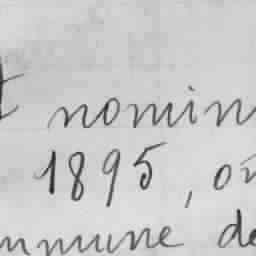 t nomin
1895, on
mmune de